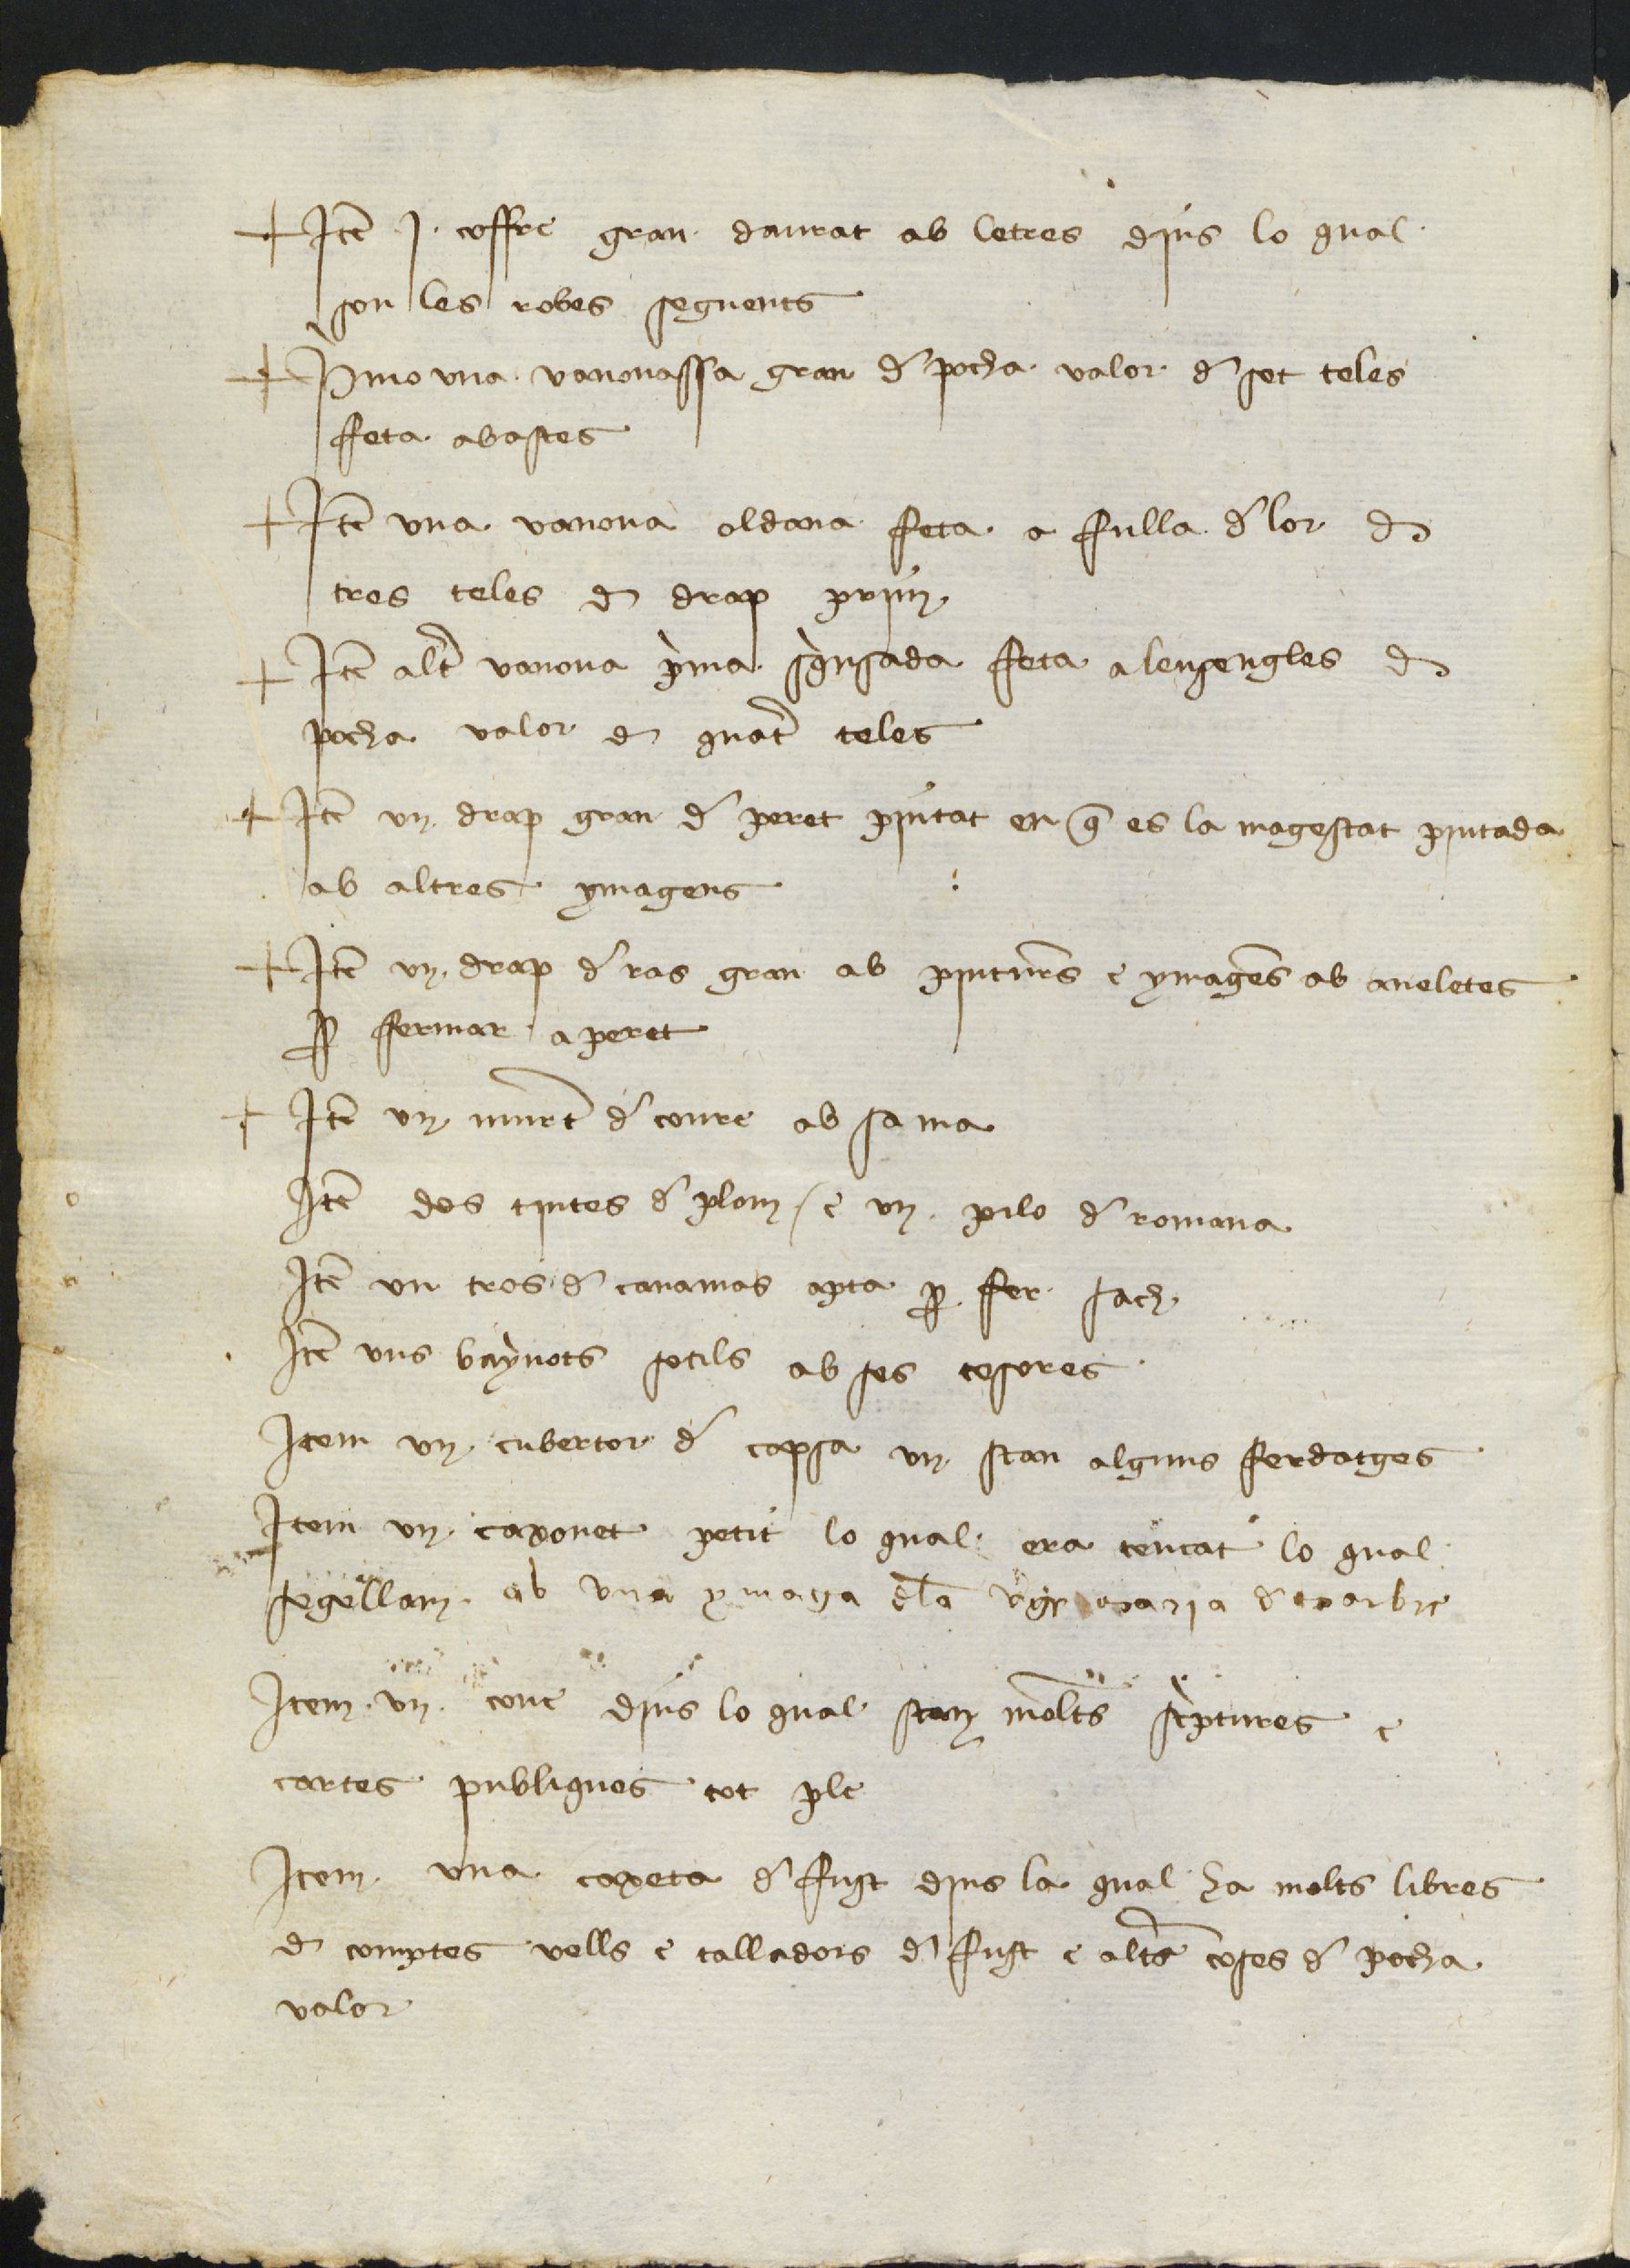 + Itē j. coffre gran daurat ab letres djns lo qual
son les robes seguents
+ Pͥmo vna vanouassa gran đ pocha valor đ set teles
ffeta abastes
+ Itē vna vanoua oldana ffeta a ffulla đ lor đ
tres teles đ drap prim
+ Itē altͬ vanoua pͥma squsada ffeta alensengles đ
pocha valor đ quatͬ teles
+ Itē vn drap gran đ peret pintat en q̄ es la magestat pintada
ab altres ymagens
+ Itē vn drap đ ras gran ab pinturs e ymagēs ab aneletes
ꝑ ffermar a peret
+ Itē vn murtͬ đ coure ab sa ma
Itē dos tintes đ plom / e vn pilo đ romana
Itē vn tros đ canamas apta ꝑ ffer sach
Itē vns baynots sotils ab ses tesores
Item vn cubertor đ capsa vn stan alguns fferdatges
Item vn caxonet petit lo qual era tencat lo qual
segellam ab vna ymatga đla vͬge maria đ marbre
Item vn coue djns lo qual stan molts scͥptures e
cartes publiques tot ple
Item vna caxeta đ ffust djns la qual ha molts libres
đ comptes vells e talladors đ ffust e altͬs coses đ pocha
valor